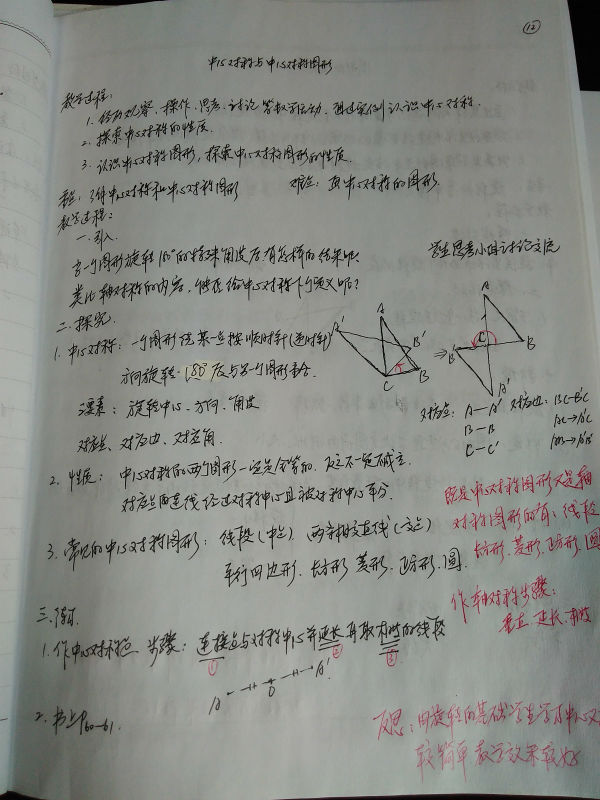 ⑫
中心对称与中心对称图形
教学过程:
1. 经历观察、操作、思考、讨论等数学活动, 通过实例认识中心对称.
2. 探索中心对称的性质.
3. 认识中心对称图形, 探索中心对称图形的性质.
重点: 了解中心对称和中心对称图形 难点: 画中心对称的图形.
教学过程:
一. 引入.
当一个图形旋转180°的特殊角度后有怎样的结果呢? 学生思考小组讨论交流
类比轴对称的内容, 你能给中心对称下个定义吗?
二. 探究.
1. 中心对称: 一个图形绕某一点按顺时针(逆时针)
方向旋转180°后与另一个图形重合.
A' A B' C B ⇒ A C B B' A'
要素: 旋转中心、方向、角度
对应点、对应边、对应角.
对应点: A—A' 对应边: BC—B'C
B—B AC→A'C
C—C' AB→A'B'
2. 性质: 中心对称的两个图形一定是全等的. 反之不一定成立.
对应点的连线经过对称中心且被对称中心平分.
3. 常见的中心对称图形: 线段(中点) 两条相交直线(交点)
平行四边形、长方形、菱形、正方形、圆.
既是中心对称图形又是轴
对称图形的有: 线段
长方形、菱形、正方形、圆
作轴对称步骤:
垂直、延长、相等
三. 练习.
1. 作中心对称点 步骤: 连接点与对称中心并延长再取相等的线段
① ② ③
A O A'
2. 书上P60-61.
反思: 由旋转的基础学生学习中心对
较简单 教学效果较好